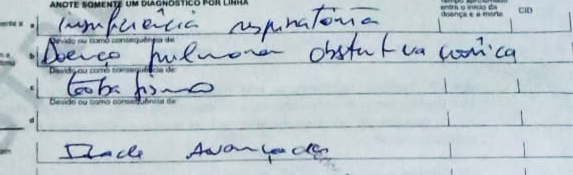 ANOTE SOMENTE UM DIAGNÓSTICO POR LINHA
entre o início da
doença e a morte CID
a Insuficiência respiratória
Devido ou como consequência de:
b Doença pulmonar obstrutiva crônica
Devido ou como consequência de:
c tabagismo
Devido ou como consequência de:
d
Idade Avançada